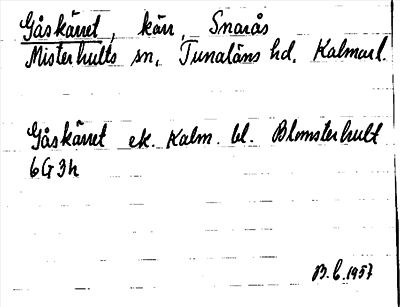 Gåskärret, kärr, Snarås
Misterhults sn, Tunaläns hd, Kalmarl.
Gåskärret ek. Kalm. bl. Blomsterhult
6G3h
B.C.1957